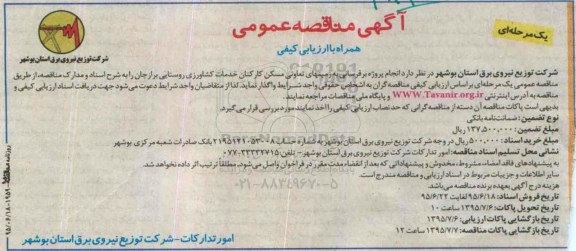 آگهی مناقصه عمومی
همراه با ارزیابی کیفی
یک مرحله‌ای
شرکت توزیع نیروی برق استان بوشهر
شرکت توزیع نیروی برق استان بوشهر در نظر دارد انجام پروژه برقرسانی به زمینهای تعاونی مسکن کارکنان خدمات کشاورزی روستایی برازجان را به شرح اسناد و مدارک مناقصه از طریق
مناقصه عمومی یک مرحله‌ای براساس ارزیابی کیفی مناقصه‌گران به اشخاص حقوقی واجد شرایط واگذار نماید. لذا از متقاضیان واجد شرایط دعوت می‌شود جهت دریافت اسناد ارزیابی کیفی و
مناقصه به آدرس اینترنتی WWW.Tavanir.org.ir و پایگاه ملی مناقصات مراجعه نمایند.
بدیهی است پاکات مناقصه آن دسته از مناقصه‌گرانی که حد نصاب ارزیابی کیفی را اخذ نمایند مورد بررسی قرار می‌گیرد.
نوع تضمین: ضمانتنامه بانکی
مبلغ تضمین: ۱۳۷,۵۰۰,۰۰۰ ریال
مبلغ خرید اسناد: ۵۰۰,۰۰۰ ریال در وجه شرکت توزیع نیروی برق استان بوشهر به شماره حساب ۲۱۹۵۱۴۱۰۵۳۰۰۸ بانک صادرات شعبه مرکزی بوشهر
نشانی محل تسلیم اسناد مناقصه: امور تدارکات شرکت توزیع نیروی برق استان بوشهر - تلفن:
به پیشنهادهای فاقد امضاء، مشروط، مخدوش و پیشنهاداتی که بعد از انقضاء مدت مقرر در فراخوان واصل می‌شود، مطلقاً ترتیب اثر داده نخواهد شد.
سایر اطلاعات و جزییات مربوط در اسناد ارزیابی و مناقصه مندرج است.
هزینه درج آگهی بعهده برنده مناقصه می‌باشد.
تاریخ فروش اسناد: ۹۵/۶/۱۸ لغایت ۹۵/۶/۲۲
تاریخ تحویل پاکات: ۱۳۹۵/۷/۶ ساعت ۱۰
تاریخ بازگشایی پاکات ارزیابی: ۱۳۹۵/۷/۶
تاریخ بازگشایی پاکات مناقصه: ۱۳۹۵/۷/۷ ساعت ۱۲
امور تدارکات - شرکت توزیع نیروی برق استان بوشهر
۰۲۱-۸۸۳۴۹۶۷۰-۵